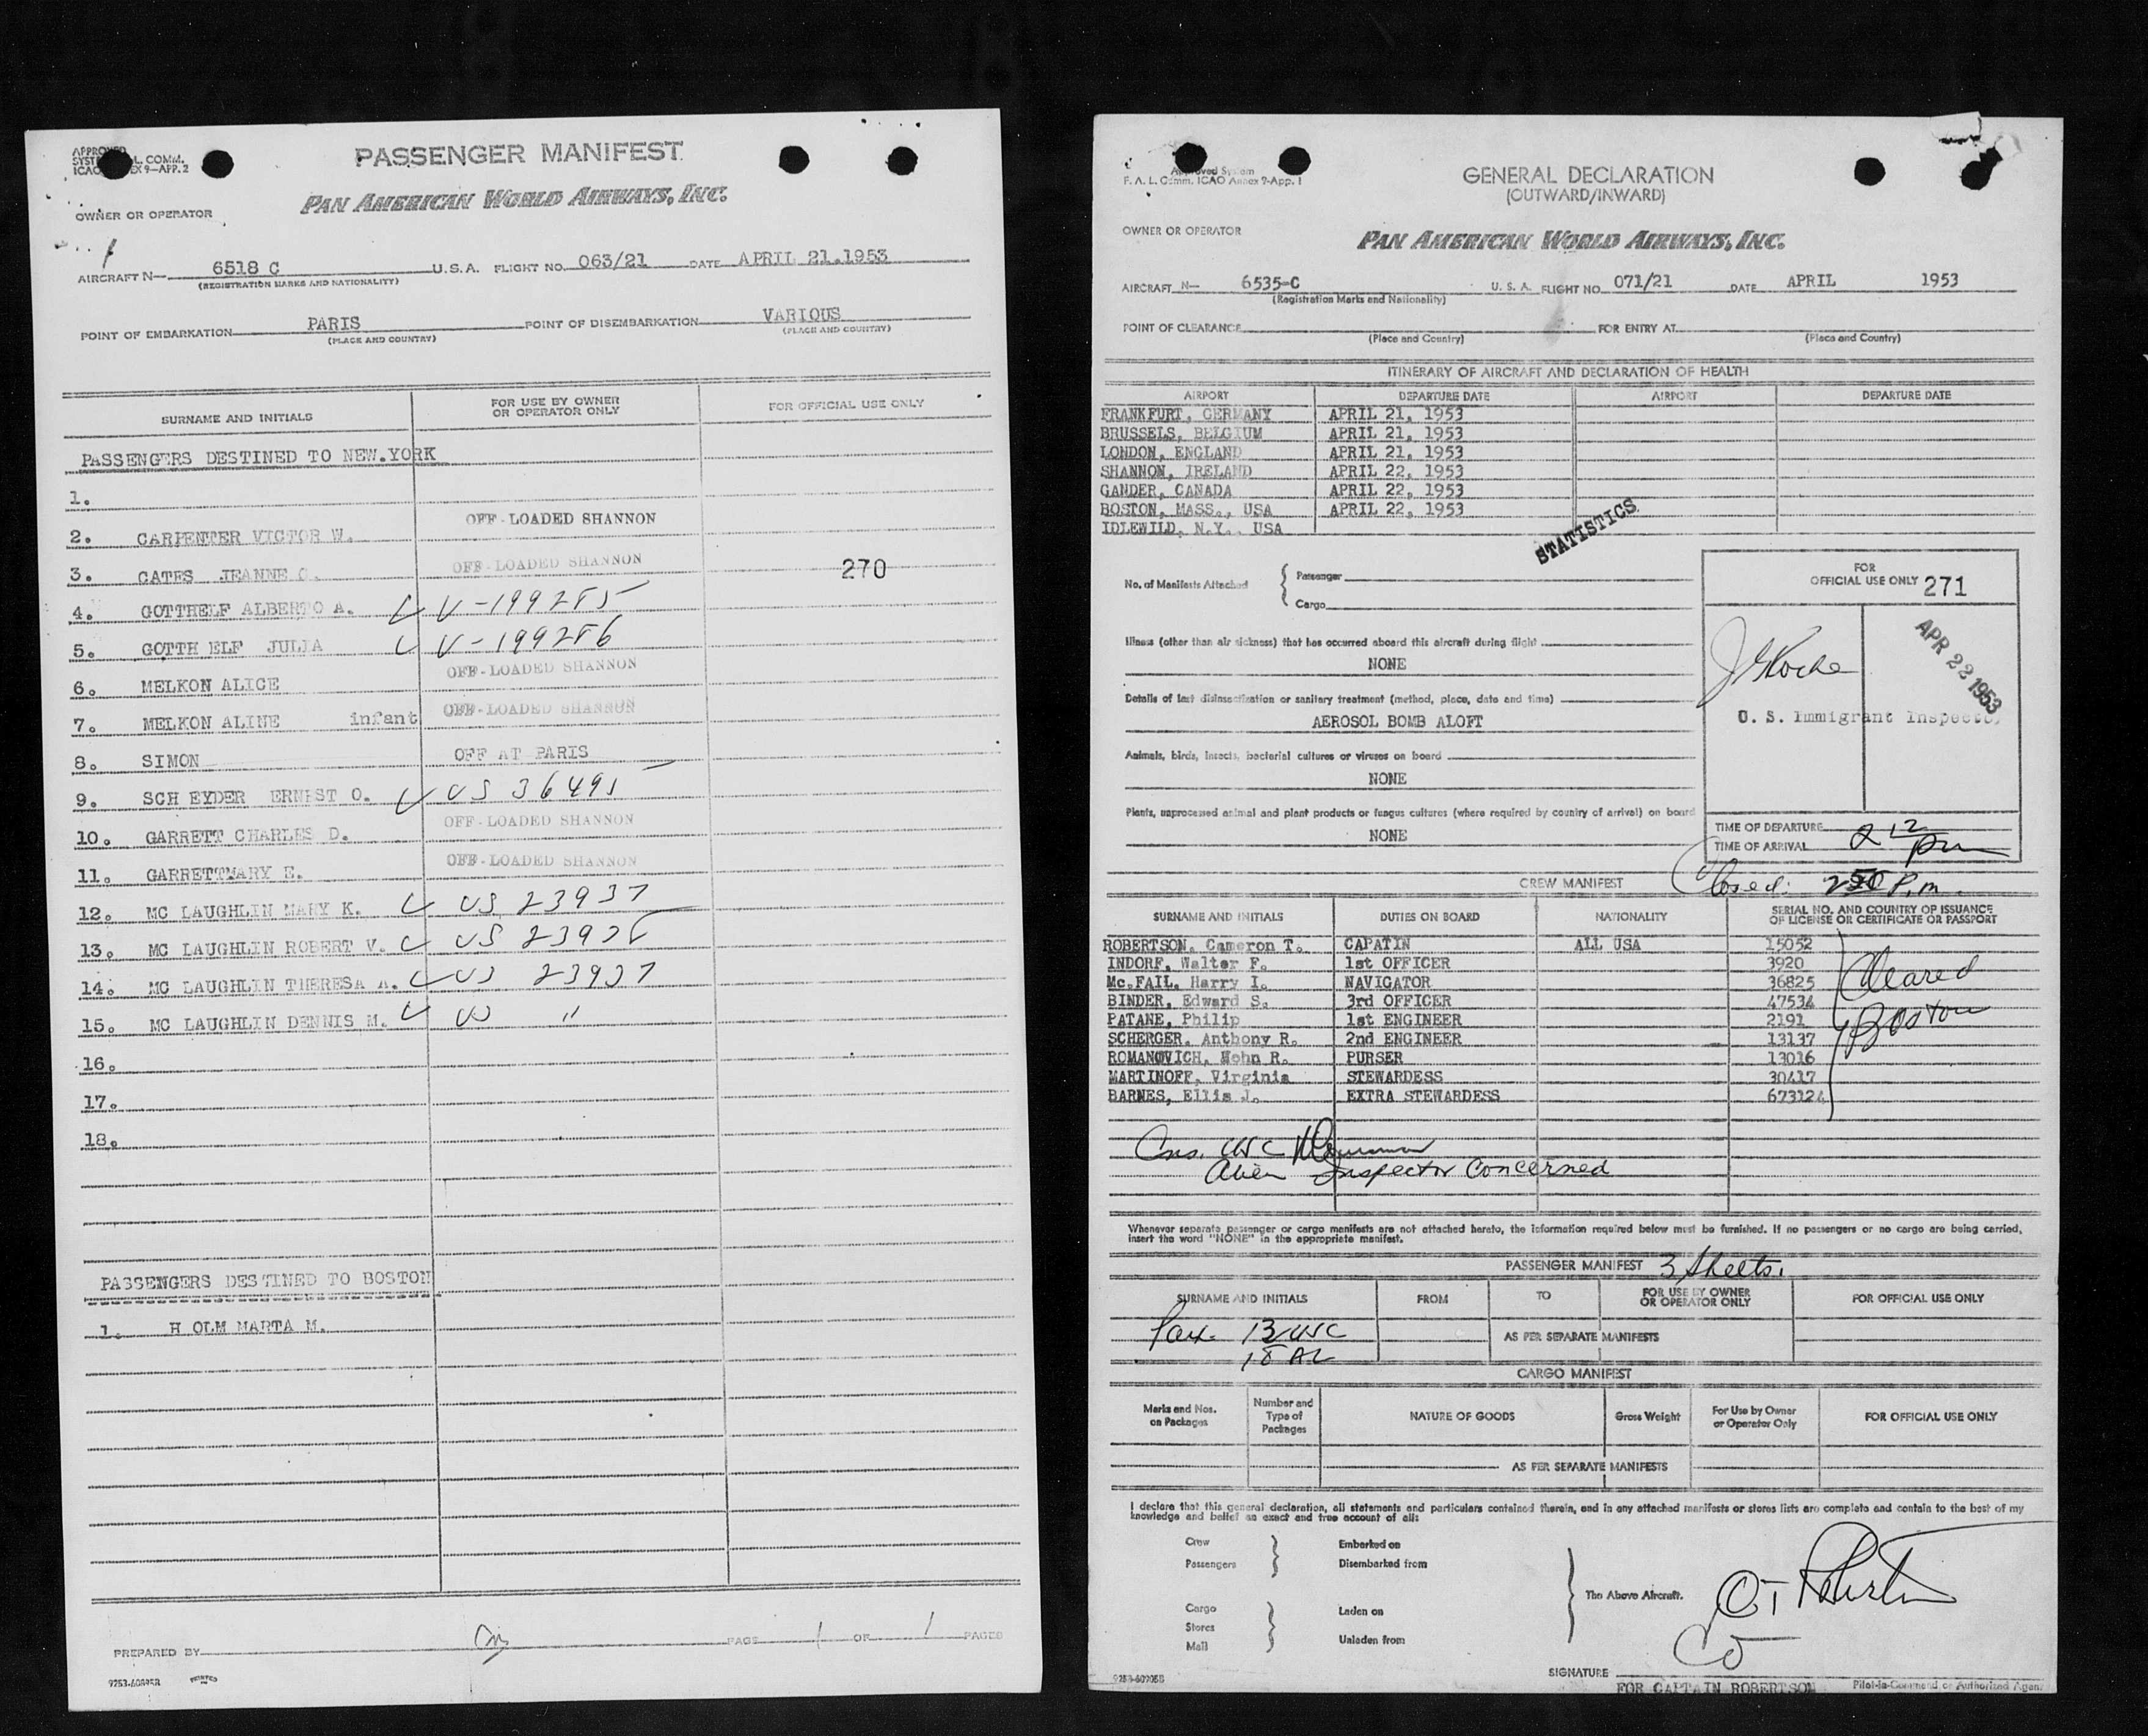 PASSENGER MANIFEST
PAN AMERICAN WORLD AIRWAYS, INC.
OWNER OR OPERATOR
AIRCRAFT N— 6518 C U.S.A. FLIGHT NO. 063/21 DATE APRIL 21.1953
(REGISTRATION MARKS AND NATIONALITY)
POINT OF EMBARKATION PARIS POINT OF DISEMBARKATION VARIOUS
(PLACE AND COUNTRY) (PLACE AND COUNTRY)
SURNAME AND INITIALS FOR USE BY OWNER OR OPERATOR ONLY FOR OFFICIAL USE ONLY
PASSENGERS DESTINED TO NEW.YORK
1.
2. CARPENTER VICTOR W. OFF-LOADED SHANNON
3. CATES JEANNE OFF-LOADED SHANNON 270
4. GOTTHELF ALBERTO A. V-199285
5. GOTTH ELF JULIA V-199286
6. MELKON ALICE OFF-LOADED SHANNON
7. MELKON ALINE infant OFF-LOADED SHANNON
8. SIMON OFF AT PARIS
9. SCH EYDER ERNEST O. US 36495
10. GARRETT CHARLES D. OFF-LOADED SHANNON
11. GARRETTMARY E. OFF-LOADED SHANNON
12. MC LAUGHLIN MARY K. US 23937
13. MC LAUGHLIN ROBERT V. US
14. MC LAUGHLIN THERESA A. US 23937
15. MC LAUGHLIN DENNIS M. US "
16.
17.
18.
PASSENGERS DESTINED TO BOSTON
1. H OLM MARTA M.
PREPARED BY PAGE 1 OF 1 PAGES
PRINTED
Approved System
F. A. L. Comm. ICAO Annex 9-App. 1
GENERAL DECLARATION
(OUTWARD/INWARD)
OWNER OR OPERATOR
PAN AMERICAN WORLD AIRWAYS, INC.
AIRCRAFT N— 6535-C U. S. A. FLIGHT NO. 071/21 DATE APRIL 1953
(Registration Marks and Nationality)
POINT OF CLEARANCE FOR ENTRY AT
(Place and Country) (Place and Country)
ITINERARY OF AIRCRAFT AND DECLARATION OF HEALTH
AIRPORT DEPARTURE DATE AIRPORT DEPARTURE DATE
FRANKFURT, GERMANY APRIL 21, 1953
BRUSSELS, BELGIUM APRIL 21, 1953
LONDON, ENGLAND APRIL 21, 1953
SHANNON, IRELAND APRIL 22, 1953
GANDER, CANADA APRIL 22, 1953
BOSTON, MASS., USA APRIL 22, 1953
IDLEWILD, N.Y., USA
STATISTICS
No. of Manifests Attached { Passenger
Cargo
FOR
OFFICIAL USE ONLY 271
APR 22 1953
U. S. Immigrant Inspector
Illness (other than air sickness) that has occurred aboard this aircraft during flight
NONE
Details of last disinsectization or sanitary treatment (method, place, date and time)
AEROSOL BOMB ALOFT
Animals, birds, insects, bacterial cultures or viruses on board
NONE
Plants, unprocessed animal and plant products or fungus cultures (where required by country of arrival) on board
NONE
TIME OF DEPARTURE
TIME OF ARRIVAL 2 12 pm
Closed: P.m.
CREW MANIFEST
SURNAME AND INITIALS DUTIES ON BOARD NATIONALITY SERIAL NO. AND COUNTRY OF ISSUANCE OF LICENSE OR CERTIFICATE OR PASSPORT
ROBERTSON, Cameron T. CAPATIN ALL USA 15052
INDORF, Walter F. 1st OFFICER 3920
Mc.FAIL, Harry I. NAVIGATOR 36825
BINDER, Edward S. 3rd OFFICER 47534
PATANE, Philip 1st ENGINEER 2191
SCHERGER, Anthony R. 2nd ENGINEER 13137
ROMANOVICH, R. PURSER 13016
MARTINOFF, Virginia STEWARDESS 30417
BARNES, Ellis J. EXTRA STEWARDESS 673124
Cleared
Boston
Alien Inspector Concerned
Whenever separate passenger or cargo manifests are not attached hereto, the information required below must be furnished. If no passengers or no cargo are being carried,
insert the word "NONE" in the appropriate manifest.
PASSENGER MANIFEST 3 Sheets.
SURNAME AND INITIALS FROM TO FOR USE BY OWNER OR OPERATOR ONLY FOR OFFICIAL USE ONLY
Pax. 13 USC
18 AL
AS PER SEPARATE MANIFESTS
CARGO MANIFEST
Marks and Nos. on Packages Number and Type of Packages NATURE OF GOODS Gross Weight For Use by Owner or Operator Only FOR OFFICIAL USE ONLY
AS PER SEPARATE MANIFESTS
I declare that this general declaration, all statements and particulars contained therein, and in any attached manifests or stores lists are complete and contain to the best of my
knowledge and belief an exact and true account of all:
Crew Embarked on
Passengers Disembarked from
The Above Aircraft.
Cargo Laden on
Stores
Mail Unladen from
SIGNATURE
FOR CAPTAIN ROBERTSON Pilot-in-Command or Authorized Agent